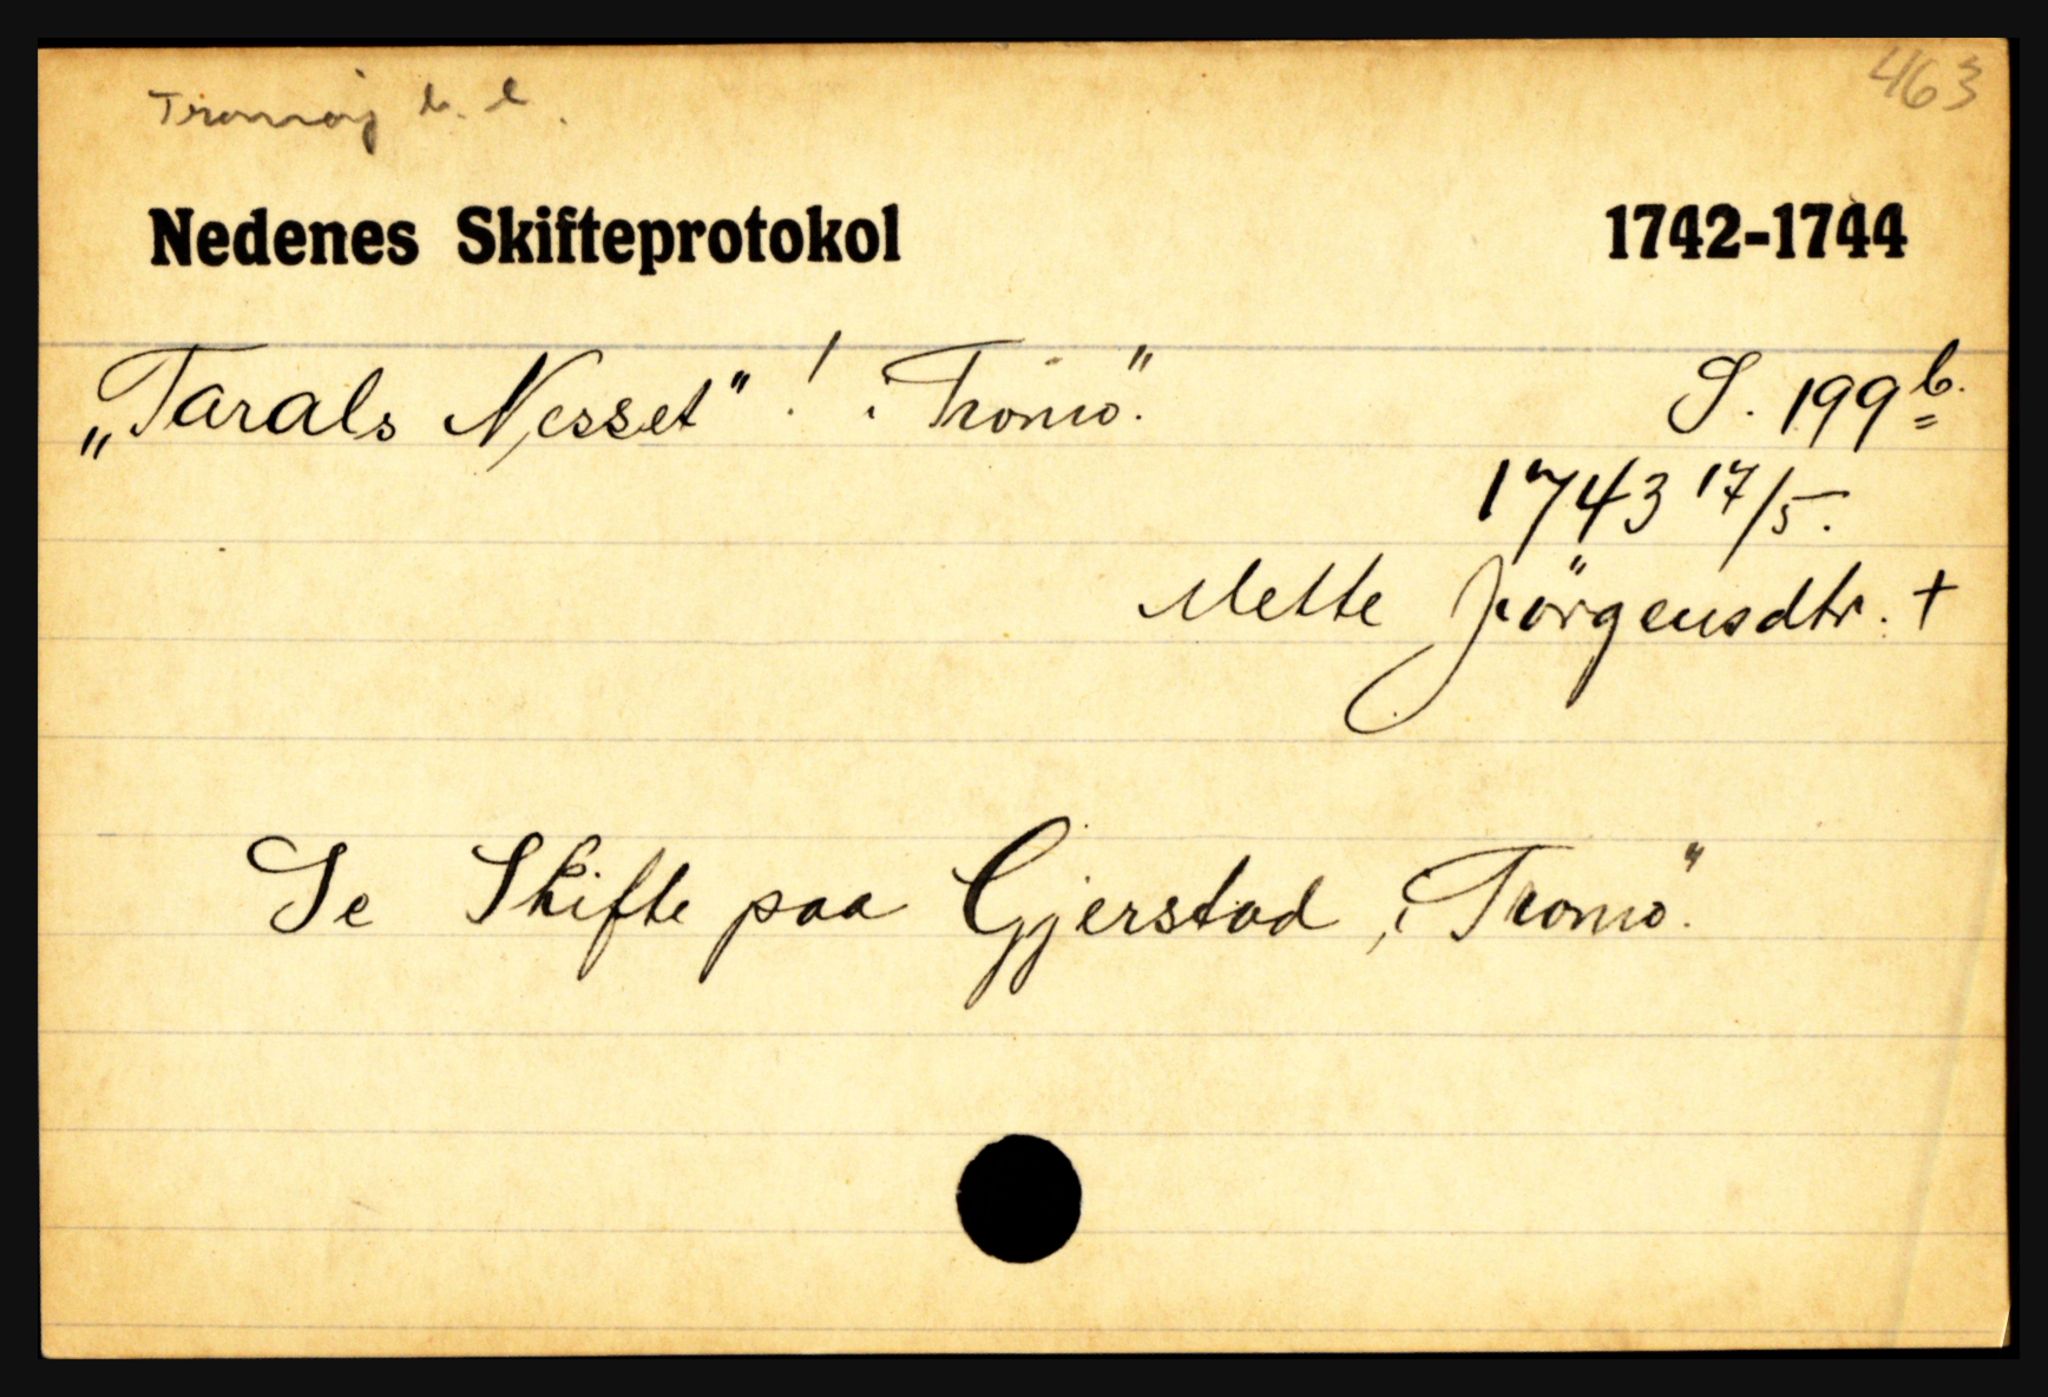 Tromøy b. l.
463
Nedenes Skifteprotokol 1742-1744
„Tarals Nesset" ! i Tromö. S. 199 b.
1743 17/5.
Mette Jörgensdtr. +
Se Skifte paa Gjerstad, i Tromö.